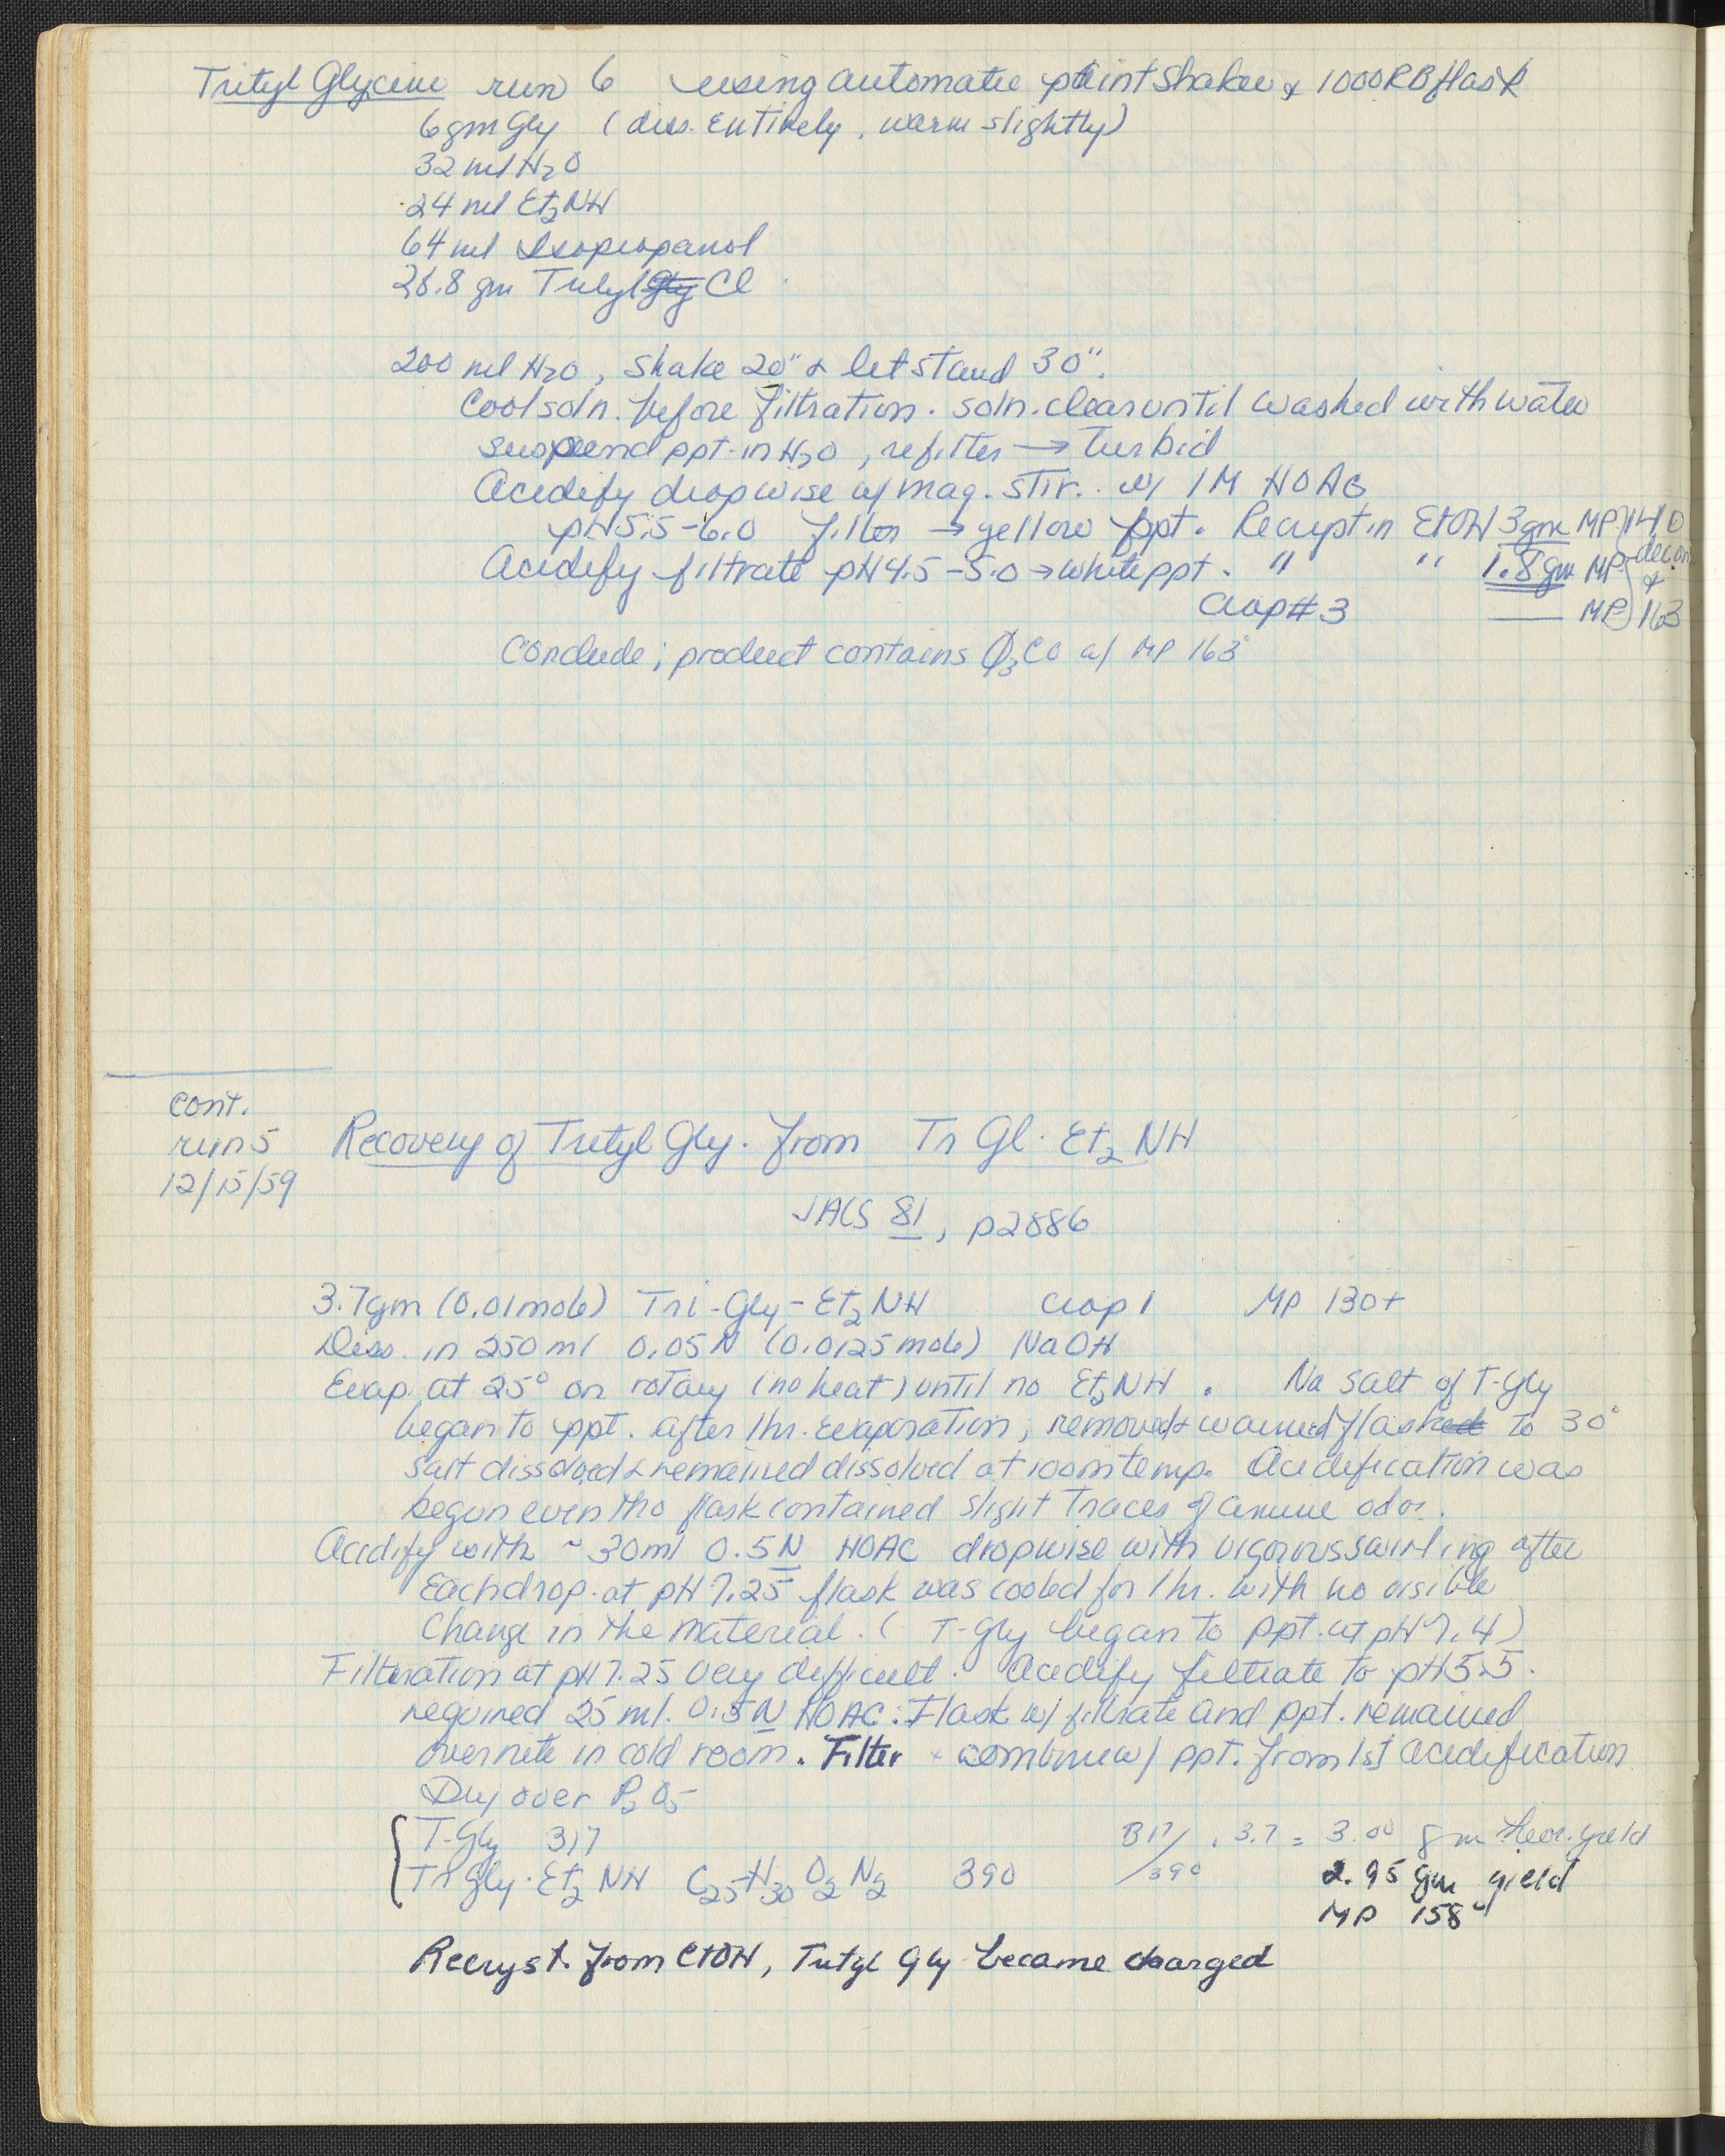 Trityl Glycine run 6 using automatic paint shaker & 1000 RB flask
6 gm Gly (diss. entirely, warm slightly)
32 ml H2O
24 ml Et2NH
64 ml Isopropanol
26.8 gm Trityl Gly Cl
200 ml H2O, shake 20" & let stand 30".
Cool soln. before filtration. soln. clear until washed with water
suspend ppt. in H2O, refilter → turbid
Acidify dropwise w/ mag. stir. w/ 1M HOAc
pH 5.5-6.0 filter → yellow ppt. Recryst in EtOH 3gm MP 140
Acidify filtrate pH 4.5-5.0 → white ppt. " " 1.8 gm MP decom &
Crop #3 — MP 163
Conclude; product contains Ø3CO w/ MP 163°
cont.
run 5
12/15/59
Recovery of Trityl Gly. from Tr Gl. Et2 NH
JACS 81, p2886
3.7gm (0.01mole) Tri-Gly-Et2 NH crop 1 MP 130+
Diss. in 250 ml 0.05 N (0.0125 mole) NaOH
Evap. at 25° on rotary (no heat) until no Et2NH. Na salt of T-Gly
began to ppt. after 1hr. evaporation; removed & warmed flask to 30°
salt dissolved & remained dissolved at room temp. Acidification was
begun even tho flask contained slight traces of amine odor.
Acidify with ~ 30ml 0.5 N HOAC dropwise with vigorous swirling after
each drop. at pH 7.25 flask was cooled for 1 hr. with no visible
change in the material. ( T-Gly began to ppt. at pH 7.4)
Filteration at pH 7.25 very difficult. Acidify filtrate to pH 5.5.
required 25 ml. 0.5 N HOAC. Flask w/ filtrate and ppt. remained
overnite in cold room. Filter & combine w/ ppt. from 1st acidification
Dry over P2O5
T-Gly 317 317/390 . 3.7 = 3.00 gm theor. yield
Tr Gly. Et2 NH C25H30O2N2 390 2.95 gm yield
MP 158°
Recryst. from EtOH, Trityl Gly became charged